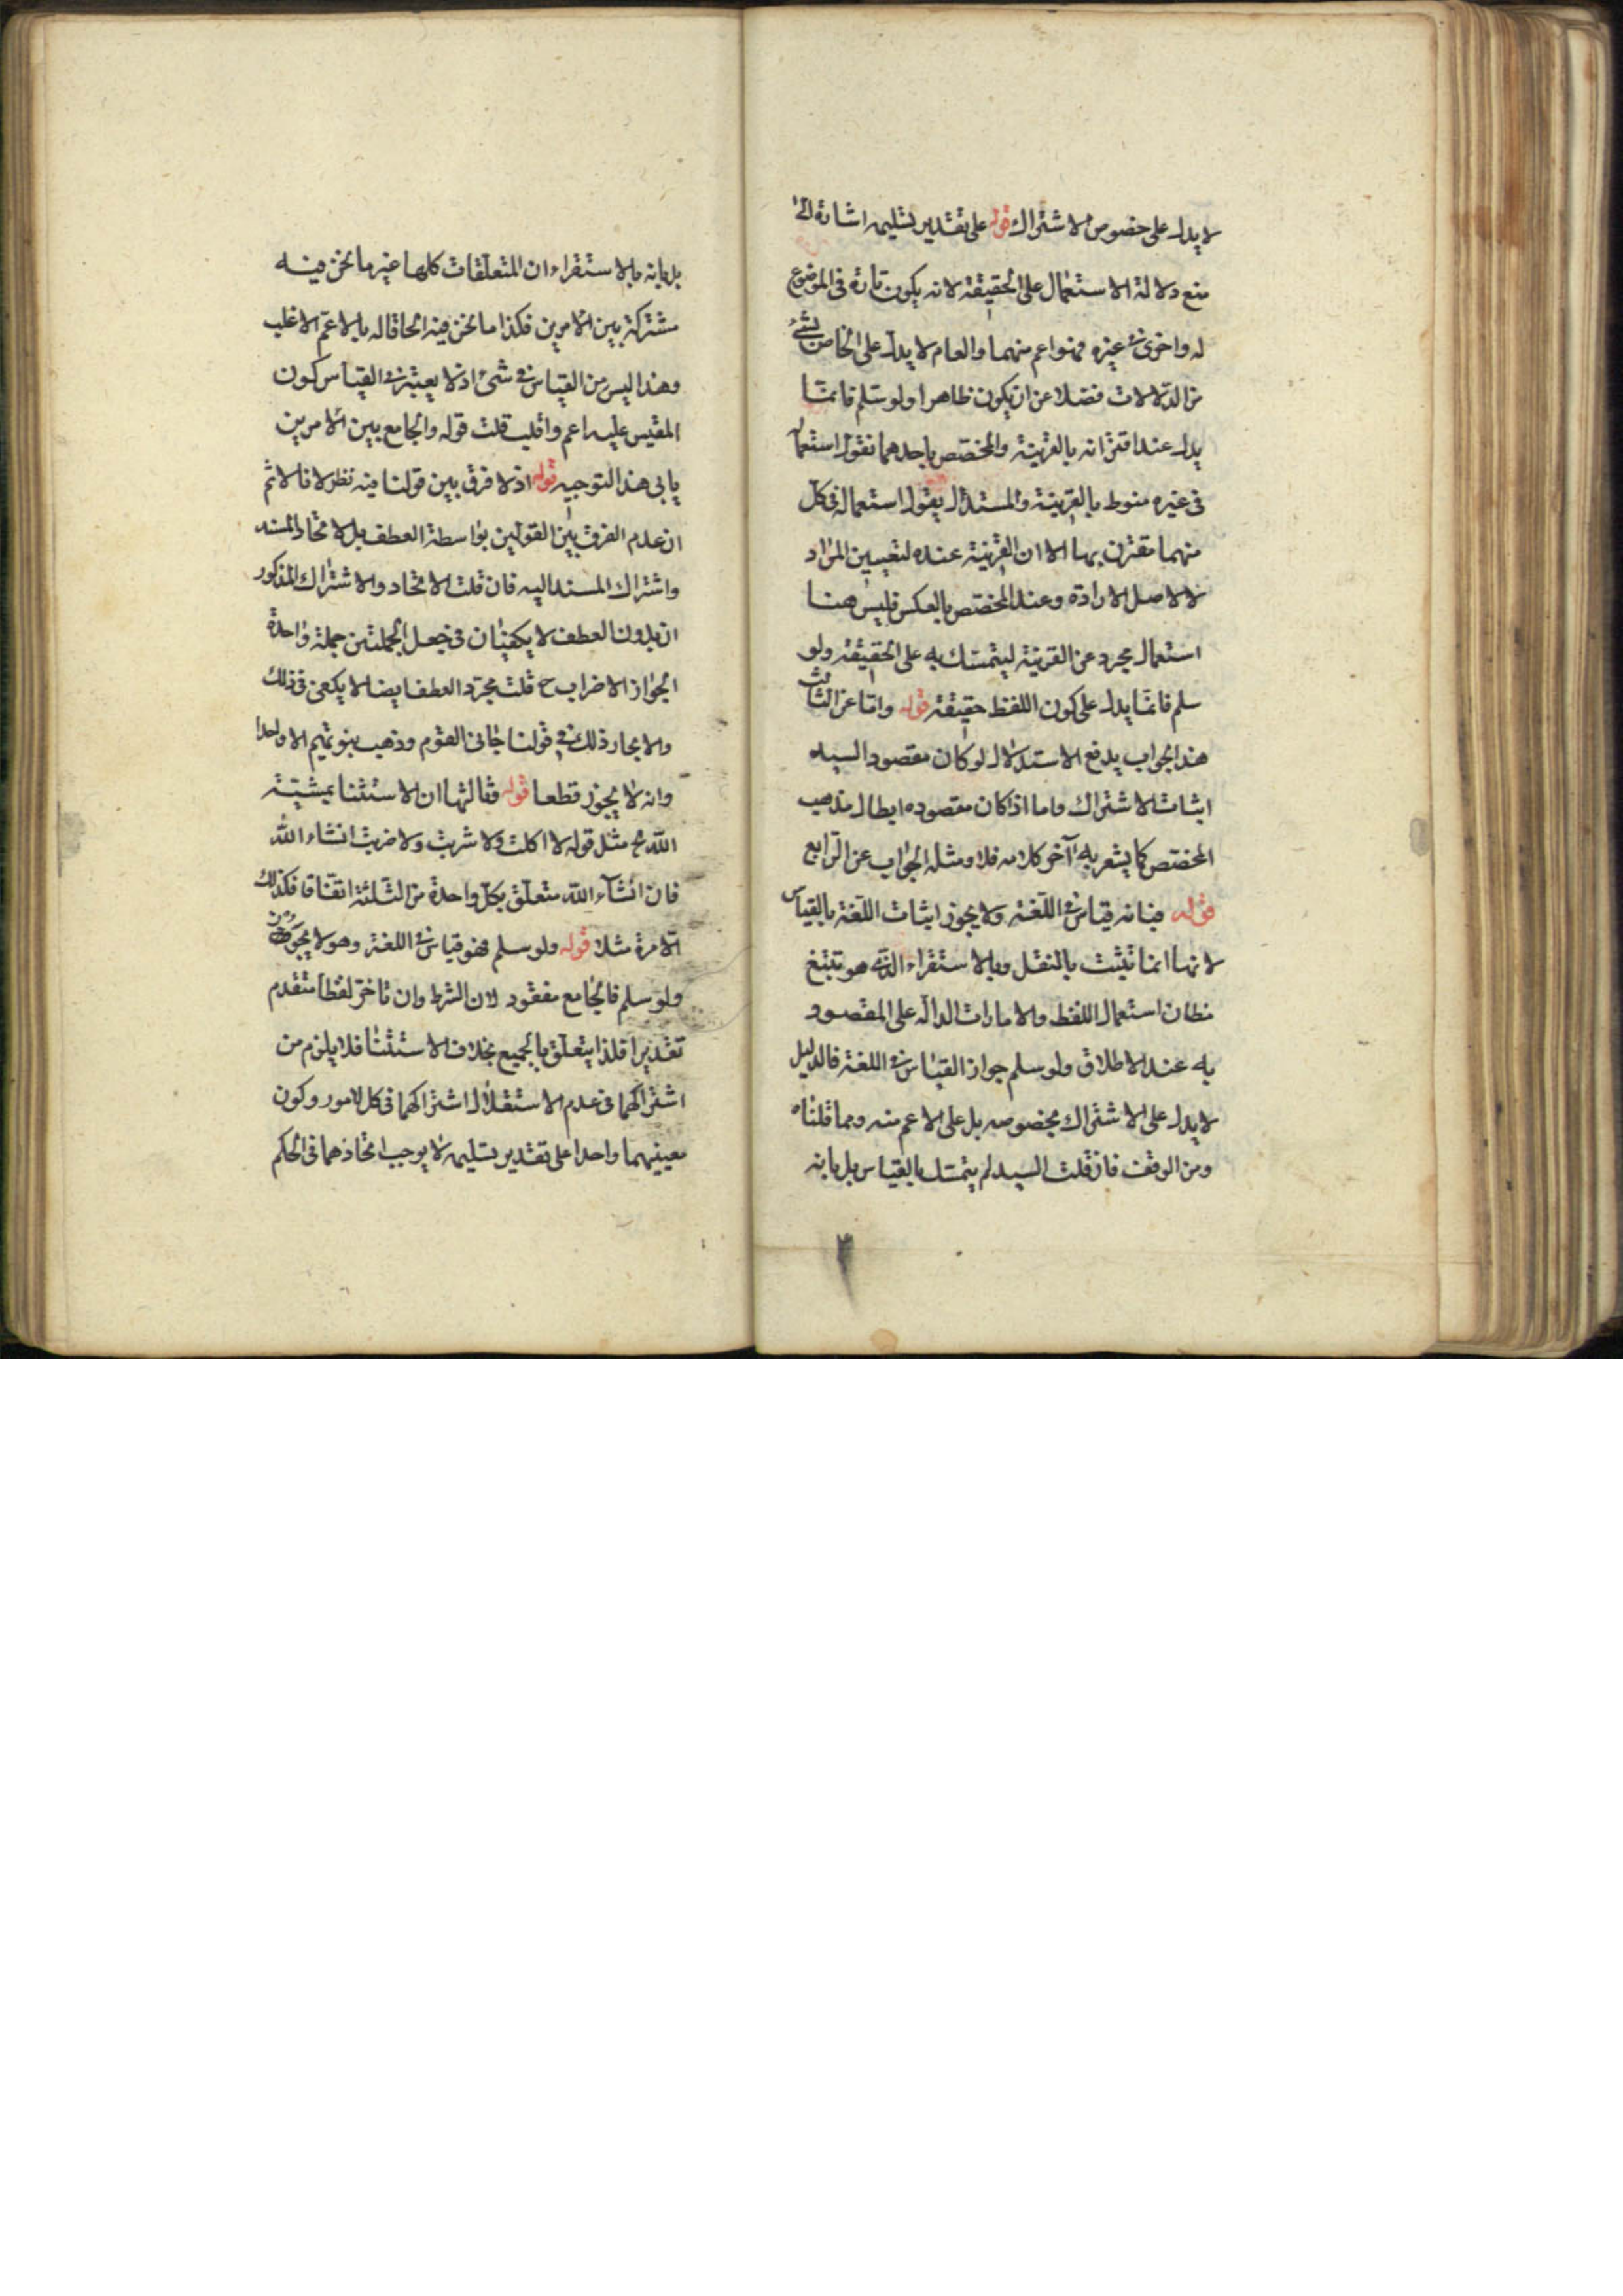 لا يدل على خصوص الاشتراك قوله على تقدير تسليمه اشارة الى
منع دلالة الاستعمال على الحقيقة لانه يكون تارة فى الموضوع
له واخرى فى غيره فهو اعم منهما والعام لا يدل على الخاص بشئ
من الدلالات فضلا عن ان يكون ظاهرا ولو سلم فانما
يدل عند اقترانه بالقرينة والمختص باحدهما نقول استعماله
فى غيره منوط بالقرينة والمستدل يقول استعماله فى كل
منهما مقترن بها الا ان القرينة عنده لتعيين المراد
لا لاصل الارادة وعند المختص بالعكس فليس هنا
استعمال مجرد عن القرينة ليتمسك به على الحقيقة ولو
سلم فانما يدل على كون اللفظ حقيقة قوله واما عن الثالث
هذا الجواب يدفع الاستدلال لو كان مقصود السيد
اثبات الاشتراك واما اذا كان مقصوده ابطال مذهب
المختص كما يشعر به آخر كلامه فلا ومثله الجواب عن الرابع
قوله فبانه قياس فى اللغة ولا يجوز اثبات اللغة بالقياس
لانها انما تثبت بالنقل وبالاستقراء الذى هو تتبع
مظان استعمال اللفظ والامارات الدالة على المقصود
به عند الاطلاق ولو سلم جواز القياس فى اللغة فالدليل
لا يدل على الاشتراك بخصوصه بل على الاعم منه ومما قلناه
ومن الوقف فان قلت السيد لم يتمسك بالقياس بل بانه
بل بانه بالاستقراء ان المتعلقات كلها غير ما نحن فيه
مشتركة بين الامرين فكذا ما نحن فيه الحاقا له بالاعم الاغلب
وهذا ليس من القياس فى شئ اذ لا يعتبر فى القياس كون
المقيس عليه اعم واغلب قلت قوله والجامع بين الامرين
يابى هذا التوجيه قوله اذ لا فرق بين قولنا فيه نظر لانا لا نم
ان عدم الفرق بين القولين بواسطة العطف بل لاتحاد المسند
واشتراك المسند اليه فان قلت الاتحاد والاشتراك المذكور
ان بدون العطف لا يكفيان فى جعل الجملتين جملة واحدة
لجواز الاضراب ح قلت مجرد العطف ايضا لا يكفى فى ذلك
والا لجاز ذلك فى قولنا جاءنى القوم وذهب بنو تميم الا واحدا
وانه لا يجوز قطعا قوله وثالثها ان الاستثنا بمشية
الله مثل قوله لا اكلت ولا شربت ولا ضربت انشاء الله
فان انشآء الله متعلق بكل واحدة من الثلثة اتفاقا فكذلك
الا مرة مثلا قوله ولو سلم فهو قياس فى اللغة وهو لا يجوز
ولو سلم فالجامع مفقود لان الشرط وان تاخر لفظا متقدم
تقديرا فلذا يتعلق بالجميع بخلاف الاستثنا فلا يلزم من
اشتراكهما فى عدم الاستقلال اشتراكهما فى كل الامور وكون
معنيهما واحدا على تقدير تسليمه لا يوجب اتحادهما فى الحكم